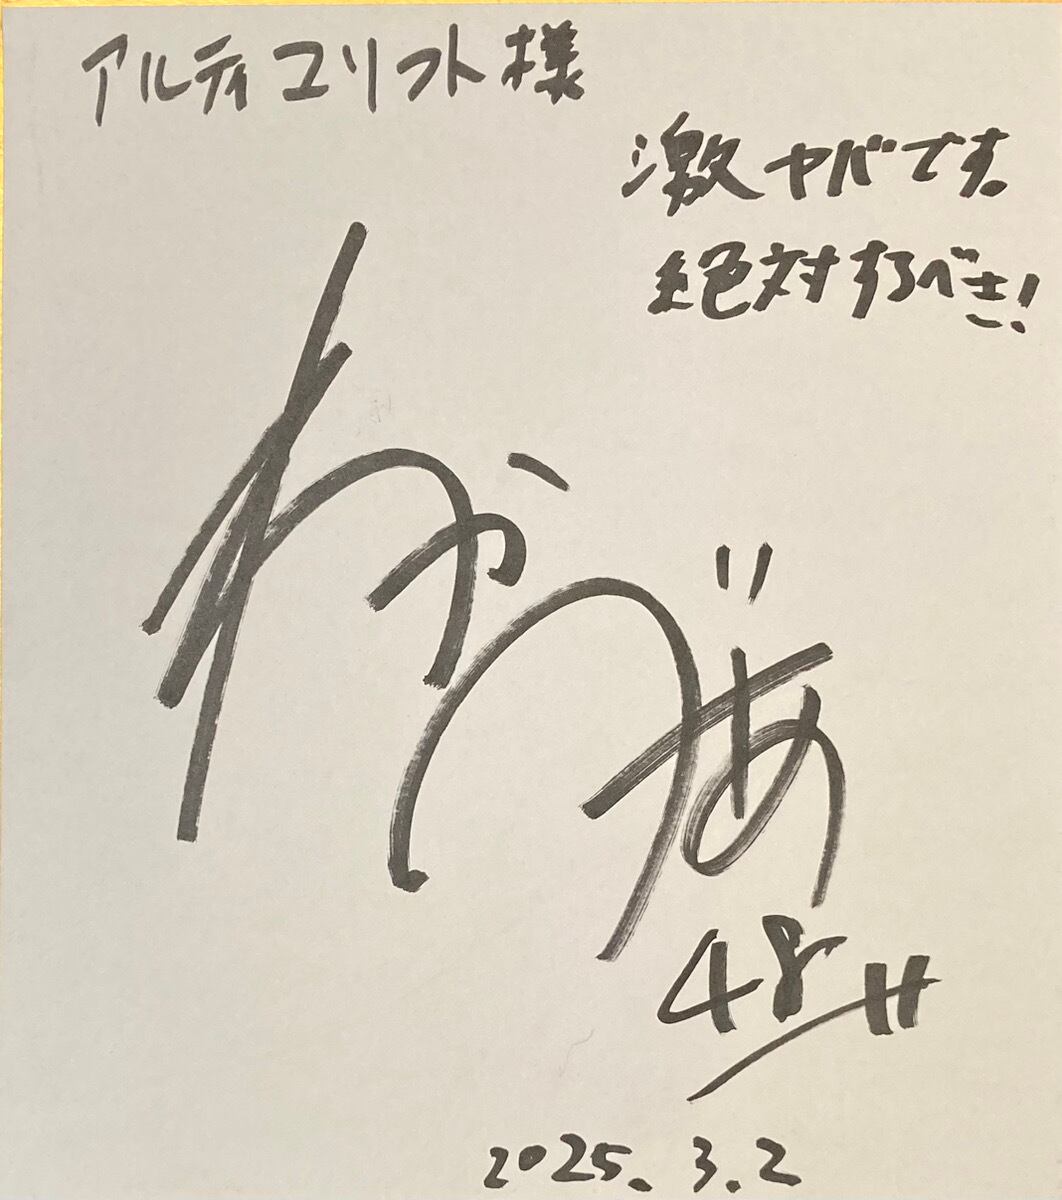 アルティユリフト様
激ヤバです。
絶対するべき!
48H
2025.3.2